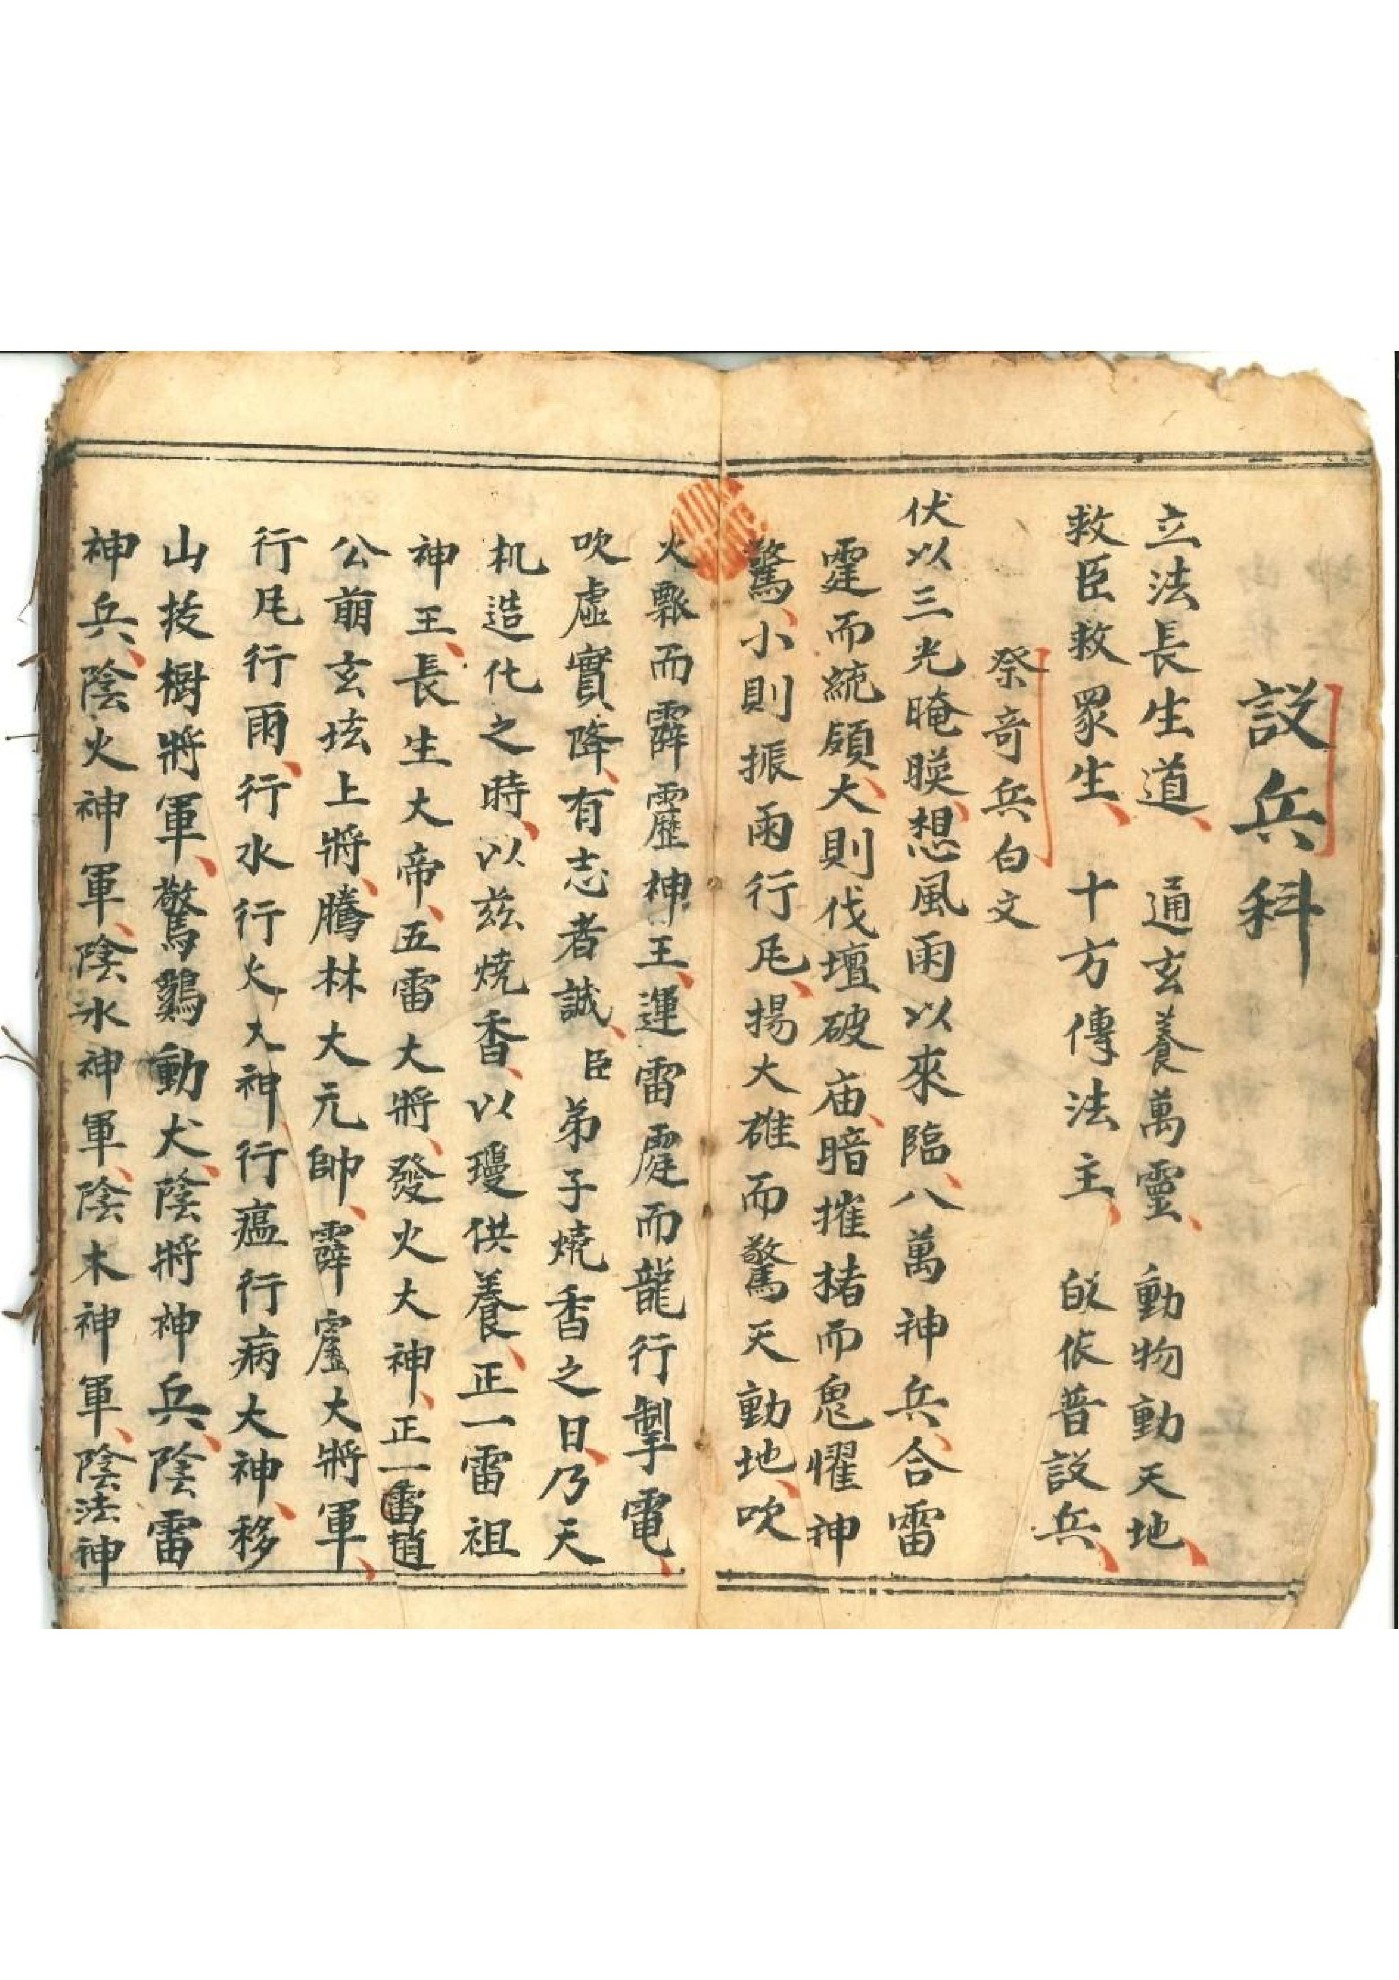 設兵科
立法長生道、通玄養萬靈、動物動天地、
救臣救眾生、十方傳法主、皈依普設兵、
祭奇兵白文
伏以三光晻暎、想風雨以來臨、八萬神兵、合雷
霆而統領、大則伐壇破庙、暗摧㨋而鬼懼神
驚、小則振雨行凬、揚大雄而驚天動地、吹
火瓢而霹靂神王、運雷霆而龍行掣電、
吹虛實降、有志者誠、臣弟子燒香之日、乃天
机造化之時、以兹燒香、以瓊供養、正一雷祖
神王、長生大帝、五雷大將、發火大神、正一雷趙
公萠玄坛上將、騰林大元帥、霹靂大將軍、
行凬行雨、行水行火大神、行瘟行病大神、移
山技樹將軍、驚鷄動犬、陰將神兵、陰雷
神兵、陰火神軍、陰水神軍、陰木神軍、陰法神